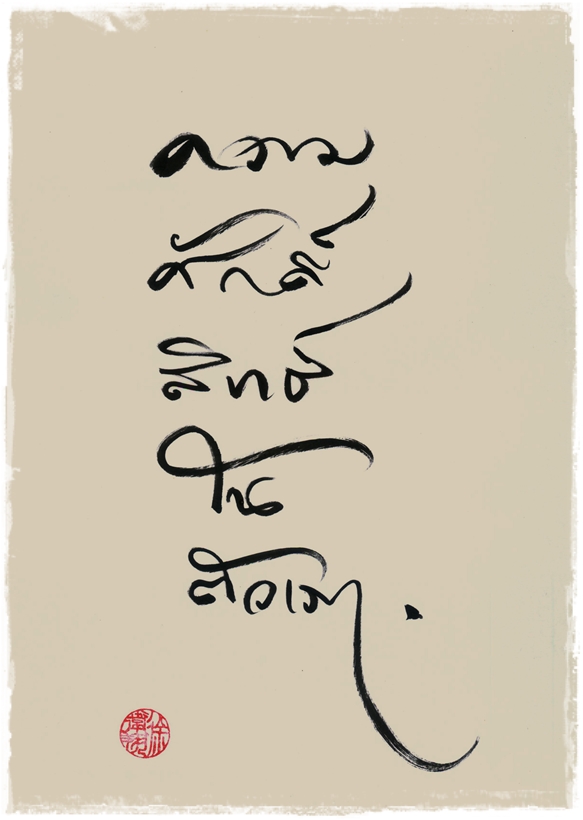 ความ
ศักดิ์
สิทธิ์
ใน
ตัวเรา